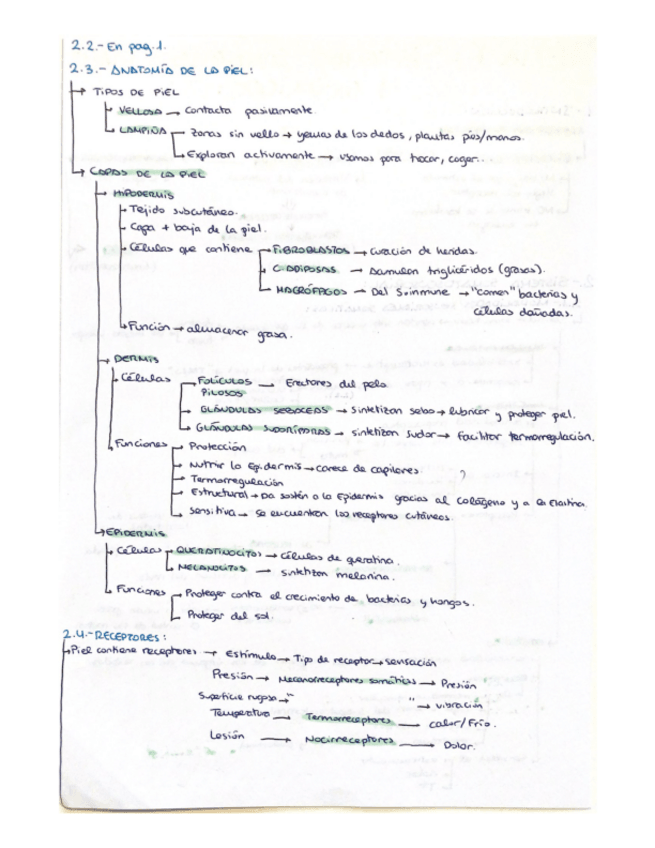 2.2.- En pag.1.
2.3.- ANATOMÍA DE LA PIEL:
TIPOS DE PIEL
VELLOSA → Contacta pasivamente.
LAMPIÑA → Zonas sin vello → yemas de los dedos, plantas pies/manos.
Exploran activamente → usamos para tocar, coger...
CAPAS DE LA PIEL
HIPODERMIS
Tejido subcutáneo.
Capa + baja de la piel.
Células que contiene → FIBROBLASTOS → Curación de heridas.
C. ADIPOSAS → Acumulan triglicéridos (grasas).
MACRÓFAGOS → Del S.inmune → "comen" bacterias y
células dañadas.
Función → almacenar grasa.
DERMIS
Células → FOLÍCULOS → Erectores del pelo
PILOSOS
GLÁNDULAS SEBÁCEAS → Sintetizan sebo → lubricar y proteger piel.
GLÁNDULAS SUDORÍPARAS → sintetizan sudor → Facilitar termorregulación.
Funciones → Protección
Nutrir la Epidermis → carece de capilares ?
Termorregulación
Estructural → Da sostén a la Epidermis gracias al Colágeno y a la Elastina.
Sensitiva → Se encuentran los receptores cutáneos.
EPIDERMIS
Células → QUERATINOCITOS → Células de queratina.
MELANOCITOS → sintetizan melanina.
Funciones → Proteger contra el crecimiento de bacterias y hongos.
Proteger del sol.
2.4.- RECEPTORES:
Piel contiene receptores → Estímulo → Tipo de receptor → sensación
Presión → Mecanorreceptores somáticos → Presión
Superficie rugosa → " " → vibración
Temperatura → Termorreceptores → calor/Frío.
Lesión → Nocirreceptores → Dolor.